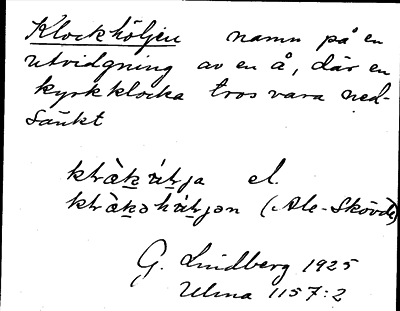 Klockhöljen namn på en
utvidgning av en å, där en
kyrkklocka tros vara ned-
sänkt
el.
(Ale-Skövde)
G. Lindberg 1925
Ulma 1157:2